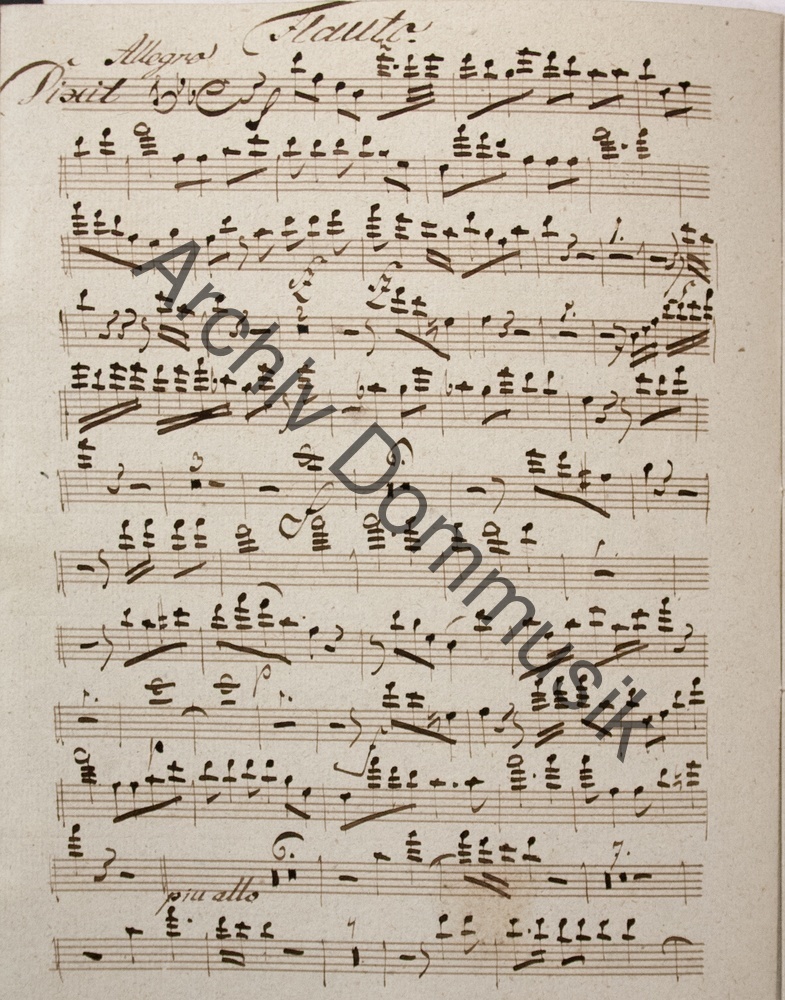 Flauto.
Allegro
Dixit
1.
2
3
6.
6.
7.
piu allo
4
Archiv Dommusik